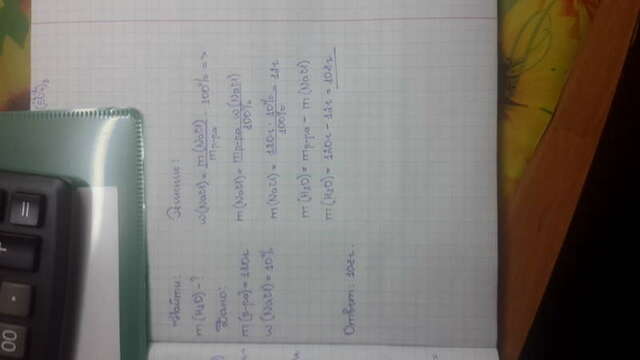 Найти:
m(H₂O)-?
Дано:
m(р-ра)=120г
w(NaCl)=10%
Решение:
w(NaCl)= m(NaCl)/mр-ра · 100% =>
m(NaCl)= mр-ра · w(NaCl)/100%
m(NaCl)= 120г · 10%/100% = 12г
m(H₂O)= mр-ра - m(NaCl)
m(H₂O)= 120г - 12г = 108г
Ответ: 108г.
=
+
.
00